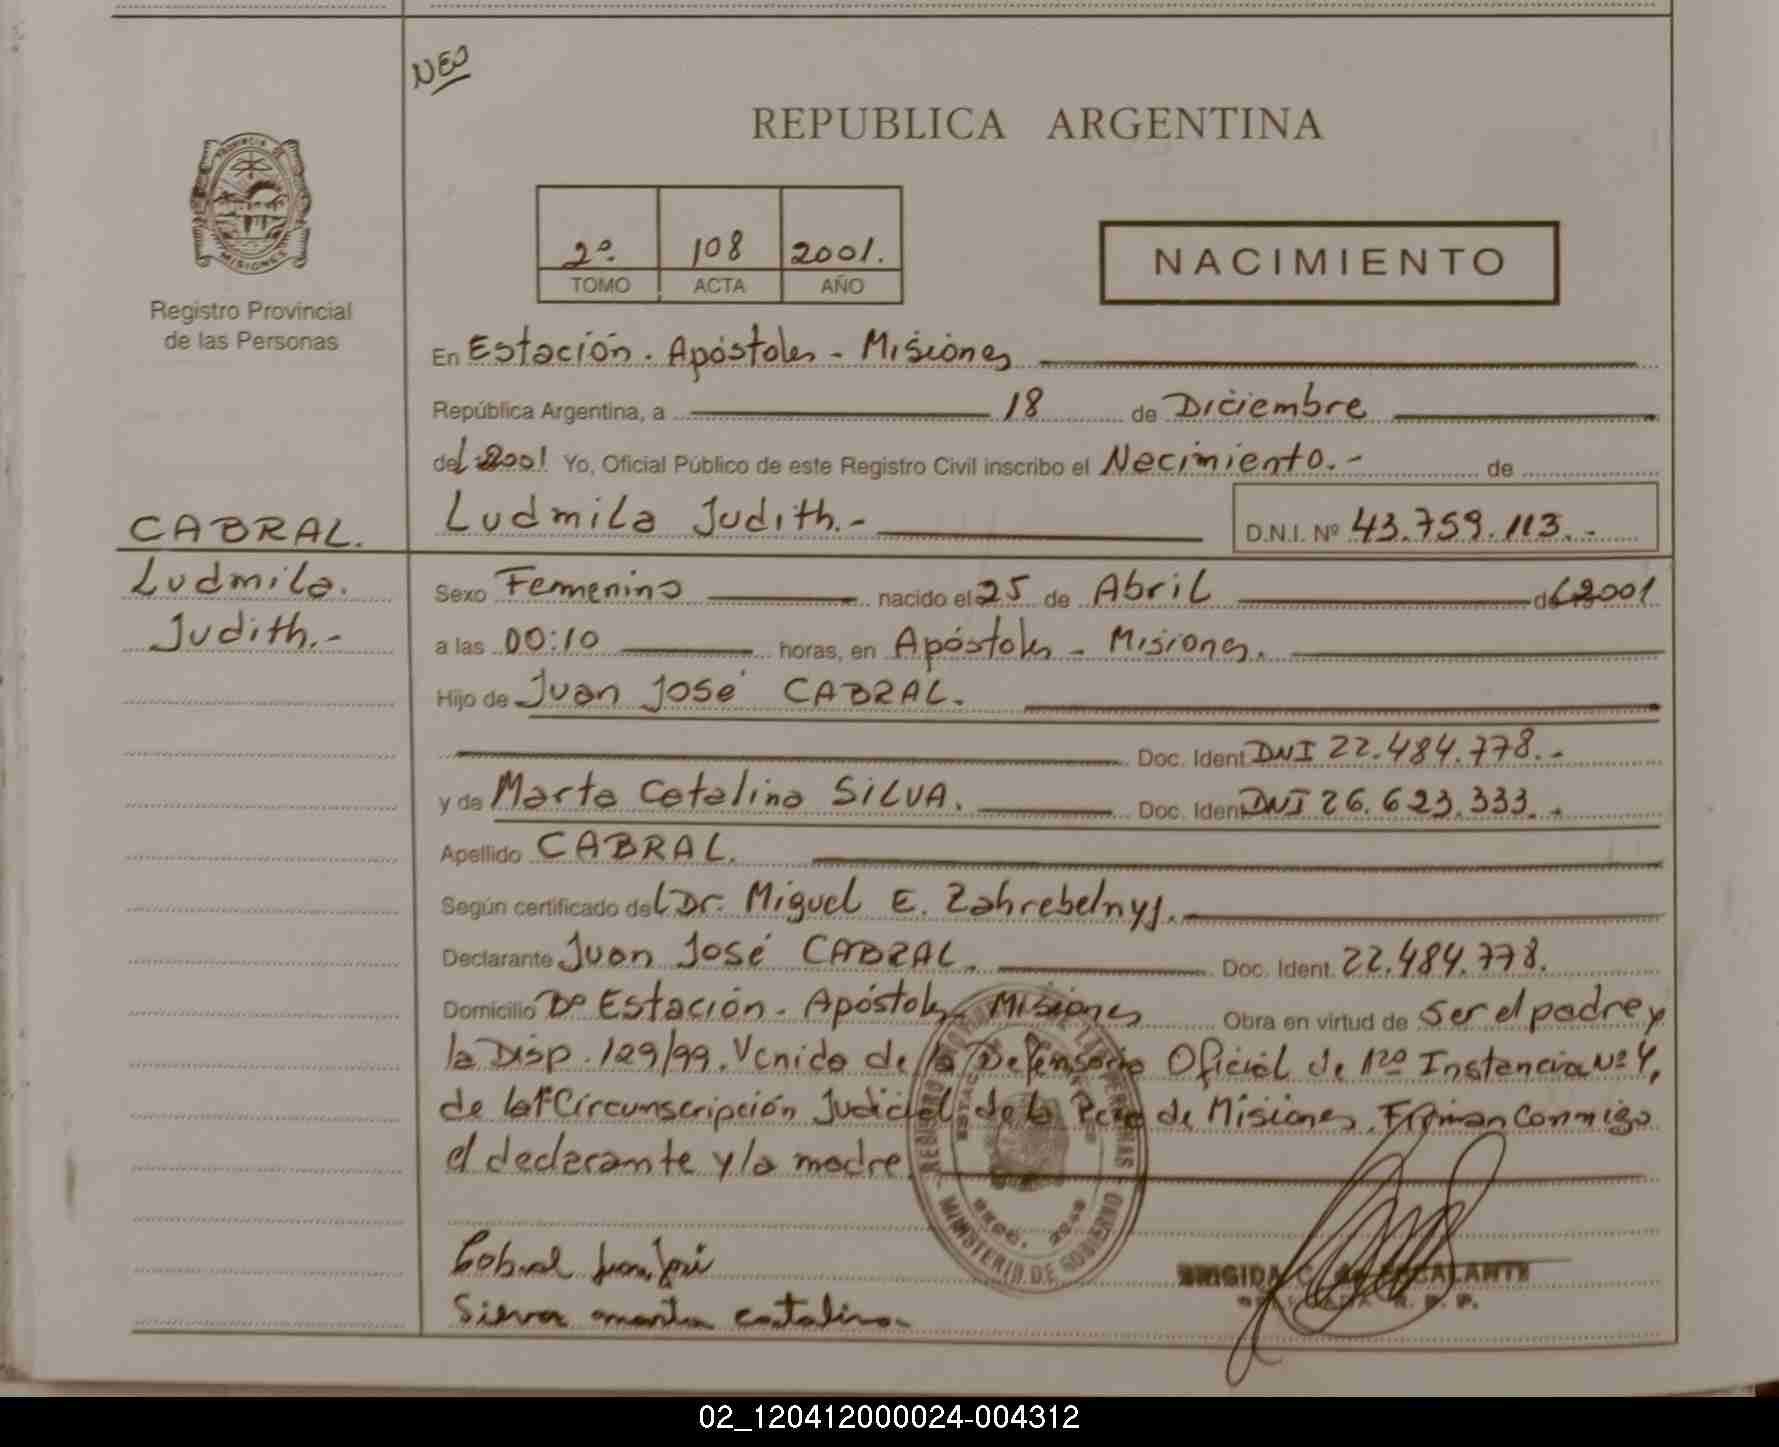 NEO
REPUBLICA ARGENTINA
PROVINCIA DE
MISIONES
2º. 108 2001.
TOMO ACTA AÑO
NACIMIENTO
Registro Provincial
de las Personas
En Estación. Apóstoles - Misiones
República Argentina, a 18 de Diciembre
del 2001 Yo, Oficial Público de este Registro Civil inscribo el Nacimiento.- de
Ludmila Judith.- D.N.I. Nº 43.759.113.-
CABRAL.
Ludmila.
Judith.-
Sexo Femenino nacido el 25 de Abril del 2001
a las 00:10 horas, en Apóstoles - Misiones.
Hijo de Juan José CABRAL.
Doc. Ident DNI 22.484.778.-
y de Marta Catalina SILVA. Doc. Ident DNI 26.623.333.-
Apellido CABRAL.
Según certificado del Dr. Miguel E. Zahrebelnyj.
Declarante Juan José CABRAL. Doc. Ident. 22.484.778.
Domicilio Dº Estación - Apóstoles - Misiones Obra en virtud de ser el padre y
la Disp. 129/99. Venida de la Defensoría Oficial de 1ra Instancia Nº 4,
de la 1ª Circunscripción Judicial de la Pcia de Misiones. Firman conmigo
el declarante y la madre
REGISTRO PERSONAS
MINISTERIO DE GOBIERNO
Cabral Juan José
Silva marta catalina
BRIGIDA C. de ESCALANTE
02_120412000024-004312